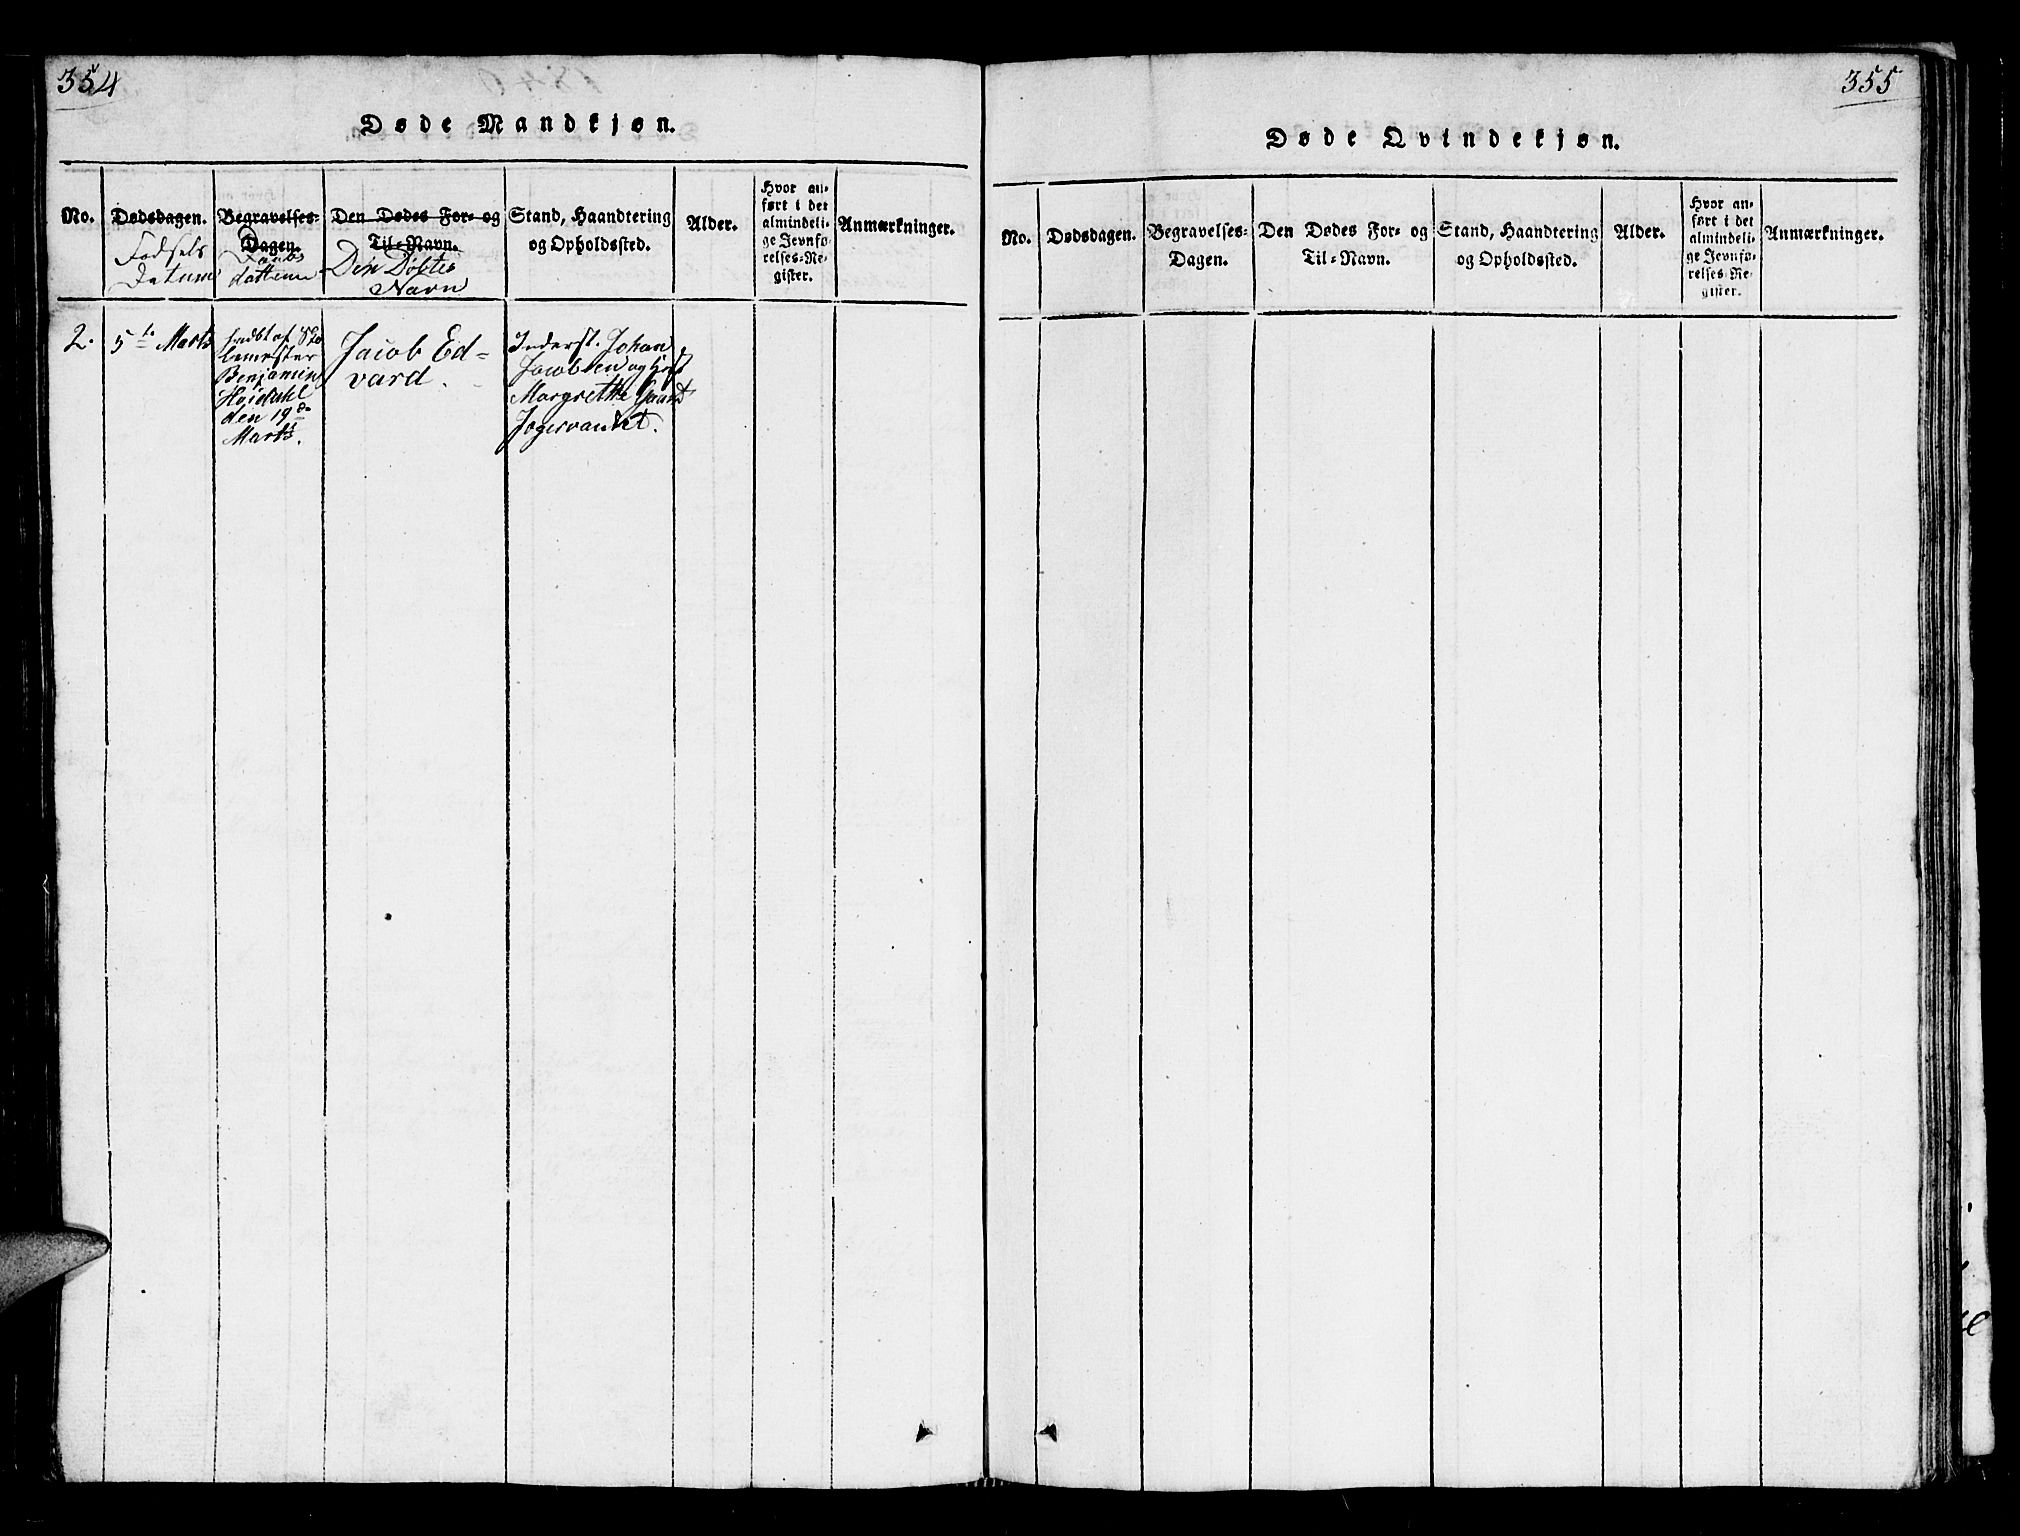 354
Døde Mandkjøn.
No.
Dødsdagen.
Fødsels
Datum
Begravelses=
Dagen.
Daabs
dattum
Den Dødes For= og
Til=Navn.
Den Døbtes
Navn
Stand, Haandtering
og Opholdssted.
Alder.
Hvor an=
ført i det
almindeli=
ge Jevnfø=
relses=Re=
gister.
Anmærkninger.
2.
5te Marts
Indbt af Sko
lemester
Benjamin
Høidahl
den 19de
Marts.
Jacob Ed=
vard.
Inderst. Johan
Jacobsen og
Margrethe
355
Døde Qvindekjøn.
No.
Dødsdagen.
Begravelses=
Dagen.
Den Dødes For= og
Til=Navn.
Stand, Haandtering
og Opholdssted.
Alder.
Hvor an=
ført i det
almindeli=
ge Jevnfø=
relses=Re=
gister.
Anmærkninger.